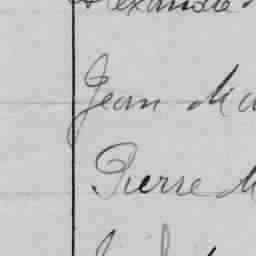 Alexandre
Jean Ma
Pierre M